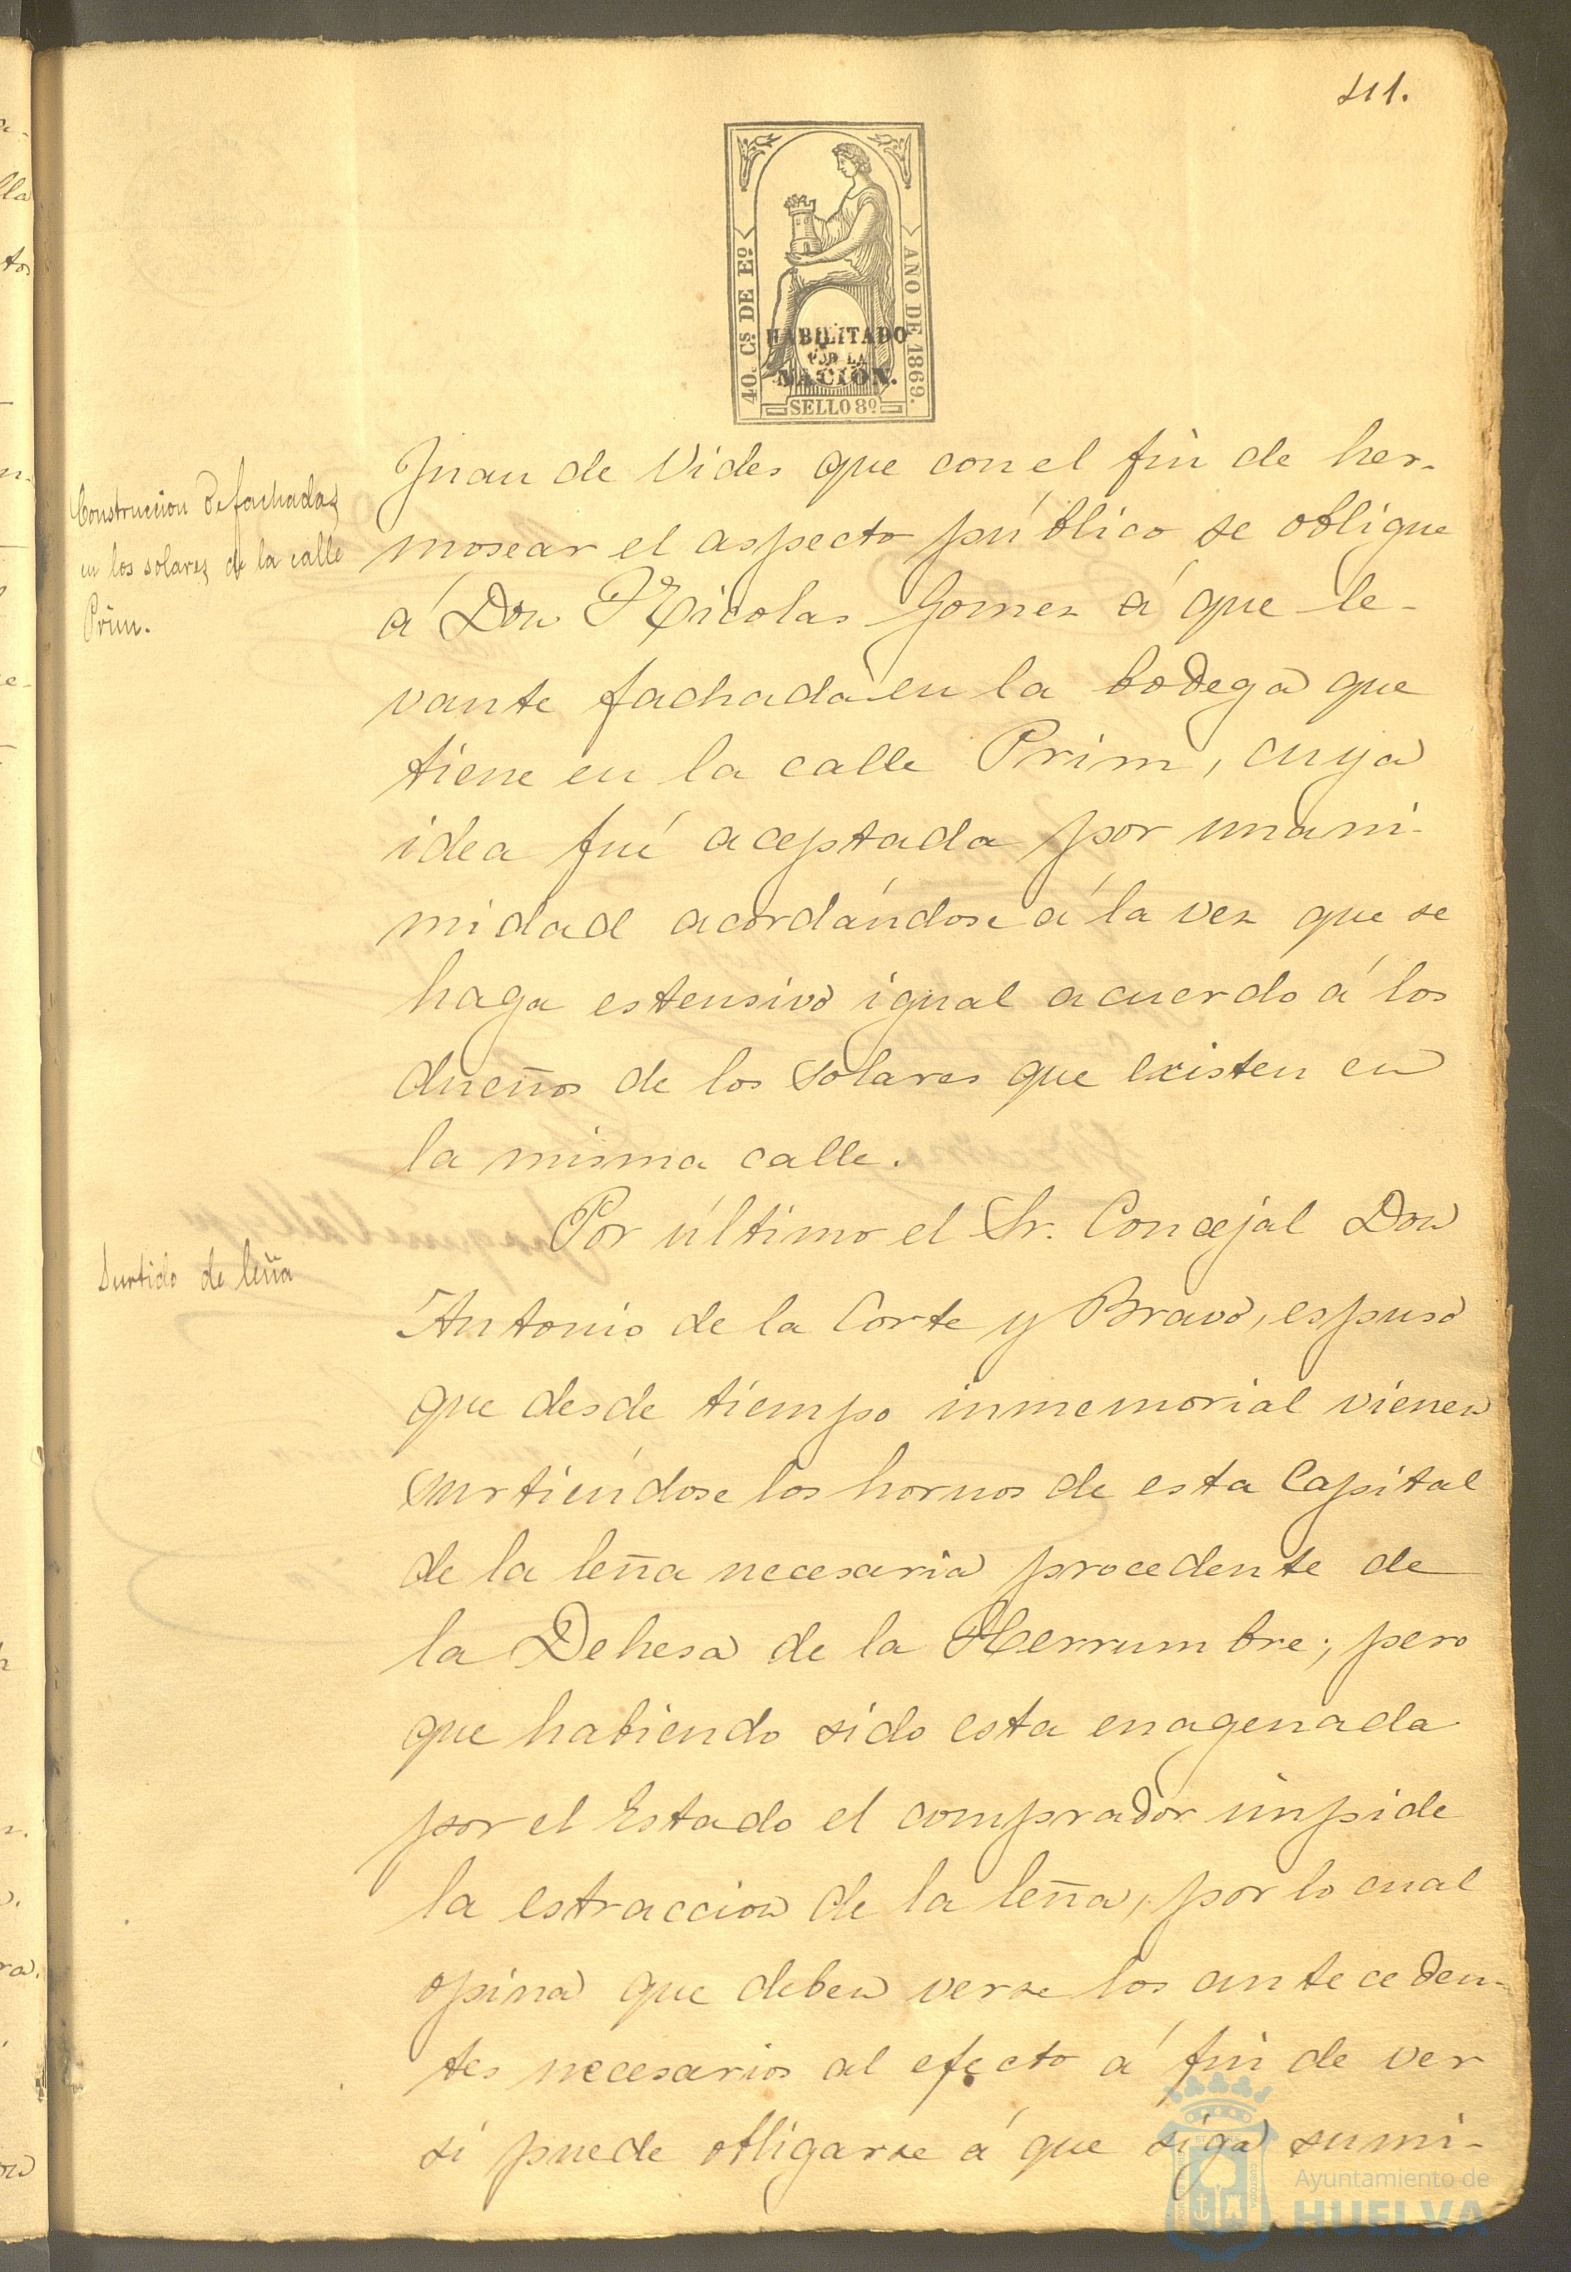 111.
40. Cs DE Eº
AÑO DE 1869.
HABILITADO
POR LA
NACION.
SELLO 8º
Construccion de fachadas
en los solares de la calle
Prim.
Juan de Vides que con el fin de her-
mosear el aspecto público se obligue
á Don Nicolas Gomez á que le-
vante fachada en la bodega que
tiene en la calle Prim, cuya
idea fué aceptada por unani-
midad acordándose á la vez que se
haga estensivo igual acuerdo á los
dueños de los solares que existen en
la misma calle.
Surtido de leña
Por último el Sr. Concejal Don
Antonio de la Corte y Bravo, espuso
que desde tiempo inmemorial vienen
surtiéndose los hornos de esta Capital
de la leña necesaria procedente de
la Dehesa de la Herrumbre; pero
que habiendo sido esta enagenada
por el Estado el comprador impide
la estraccion de la leña, por lo cual
opina que deben verse los anteceden-
tes necesarios al efecto á fin de ver
si puede obligarse á que siga sumi-
Ayuntamiento de
HUELVA